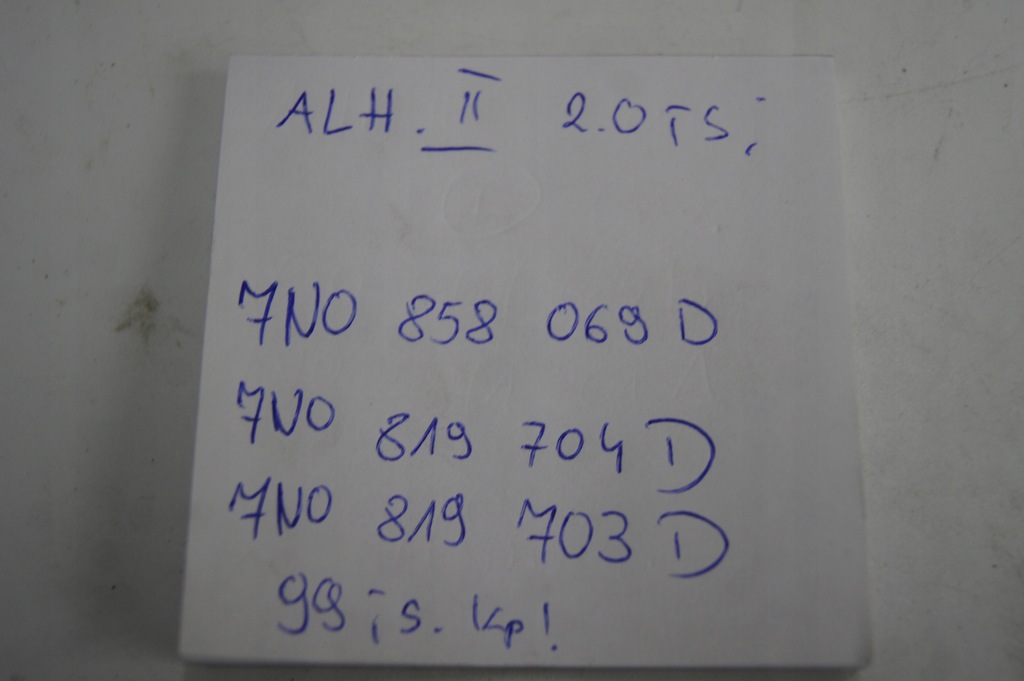 ALH. II 2.0 TSi
7N0 858 069 D
7N0 819 704 D
7N0 819 703 D
99 Ts. Kp!